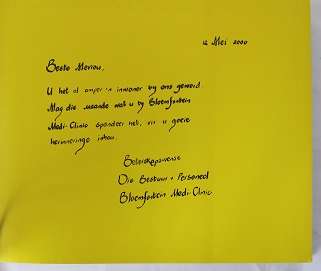 12 Mei 2000
Beste Meriou,
U het al amper 'n inwoner by ons geword.
Mag die maande wat u by Bloemfontein
Medi-Clinic spandeer het, vir u goeie
herinneringe inhou.
Beterskapwense
Die Bestuur + Personeel
Bloemfontein Medi-Clinic